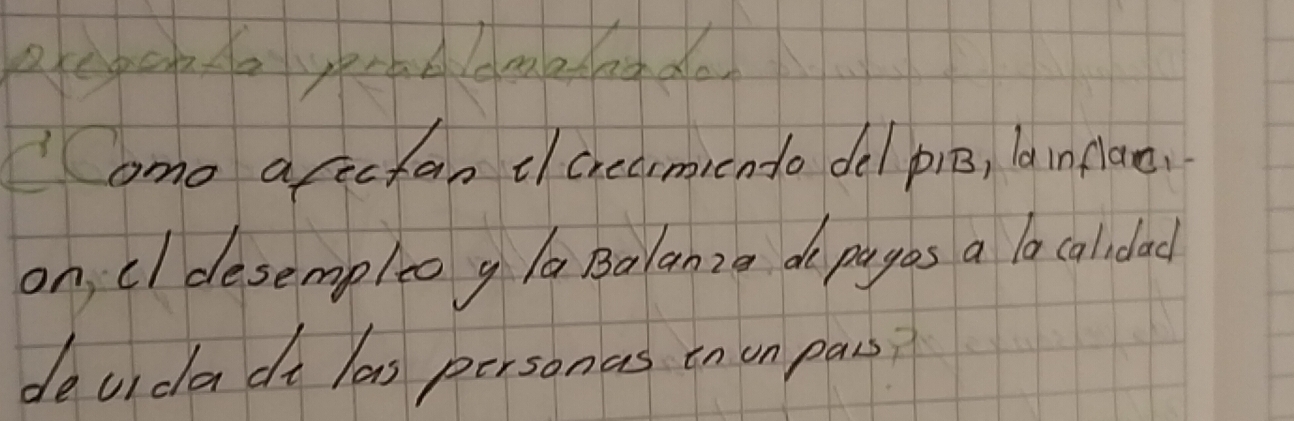 pregunta problematizadora
¿Como afectan el crecimiento del PIB, la inflaci-
on, el desempleo y la Balanza de pagos a la calidad
de vida de las personas en un pais?